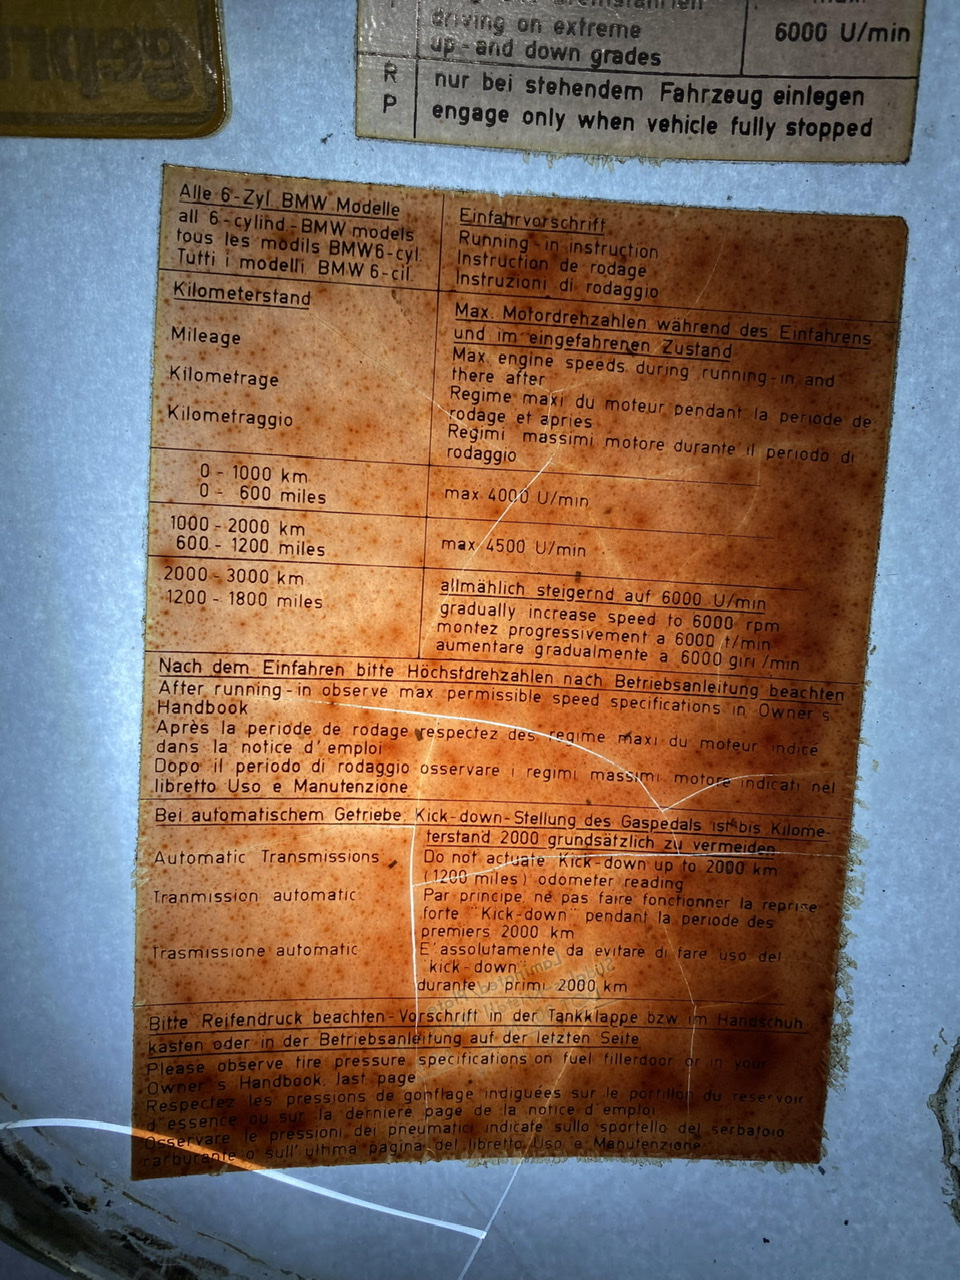 driving on extreme
up-and down grades
6000 U/min
R
P
nur bei stehendem Fahrzeug einlegen
engage only when vehicle fully stopped
Alle 6-Zyl. BMW Modelle
all 6-cylind-BMW models
tous les modils BMW6-cyl.
Tutti i modelli BMW 6-cil.
Einfahrvorschrift
Running in instruction
Instruction de rodage
Instruzioni di rodaggio
Kilometerstand
Mileage
Kilometrage
Kilometraggio
Max. Motordrehzahlen während des Einfahrens
und im eingefahrenen Zustand
Max engine speeds during running-in and
there after
Regime maxi du moteur pendant la periode de
rodage et apries
Regimi massimi motore durante il periodo di
rodaggio
0 - 1000 km
0 - 600 miles
max 4000 U/min
1000 - 2000 km
600 - 1200 miles
max 4500 U/min
2000 - 3000 km
1200 - 1800 miles
allmählich steigernd auf 6000 U/min
gradually increase speed to 6000 rpm
montez progressivement a 6000 t/min
aumentare gradualmente a 6000 giri/min
Nach dem Einfahren bitte Höchstdrehzahlen nach Betriebsanleitung beachten
After running-in observe max permissible speed specifications in Owner's
Handbook
Après la periode de rodage respectez des regime maxi du moteur indicé
dans la notice d'emploi
Dopo il periodo di rodaggio osservare i regimi massimi motore indicati nel
libretto Uso e Manutenzione
Bei automatischem Getriebe Kick-down-Stellung des Gaspedals ist bis Kilome-
terstand 2000 grundsätzlich zu vermeiden
Automatic Transmissions
Do not actuate Kick-down up to 2000 km
(1200 miles) odometer reading
Tranmission automatic
Par principe, né pas faire fonctionner la reprise
forte "Kick-down" pendant la periode des
premiers 2000 km
Trasmissione automatic
E'assolutamente da evitare di fare uso del
"kick-down"
durante i primi 2000 km
Bitte Reifendruck beachten-Vorschrift in der Tankklappe bzw im Handschuh
kasten oder in der Betriebsanleitung auf der letzten Seite
Please observe tire pressure specifications on fuel fillerdoor or in your
Owner's Handbook, last page
Respectez les pressions de gonflage indiguées sur le portillon du reservoir
d'essence ou sur la derniere page de la notice d'emploi
Osservare le pressioni dei pneumatici indicate sullo sportello del serbatoio
carburante o sull'ultima pagina del libretto Uso e Manutenzione